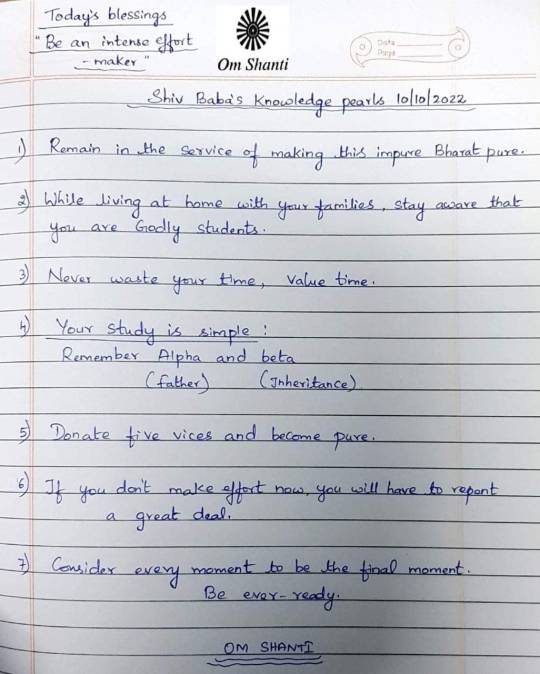 Today's blessings
"Be an intense effort
- maker"
Om Shanti
Date
Page
Shiv Baba's Knowledge pearls 10/10/2022
1) Remain in the service of making this impure Bharat pure.
2) While living at home with your families, stay aware that
you are Godly students.
3) Never waste your time, value time.
4) Your study is simple :
Remember Alpha and beta
(father) (Inheritance)
5) Donate five vices and become pure.
6) If you don't make effort now, you will have to repent
a great deal.
7) Consider every moment to be the final moment.
Be ever-ready.
OM SHANTI